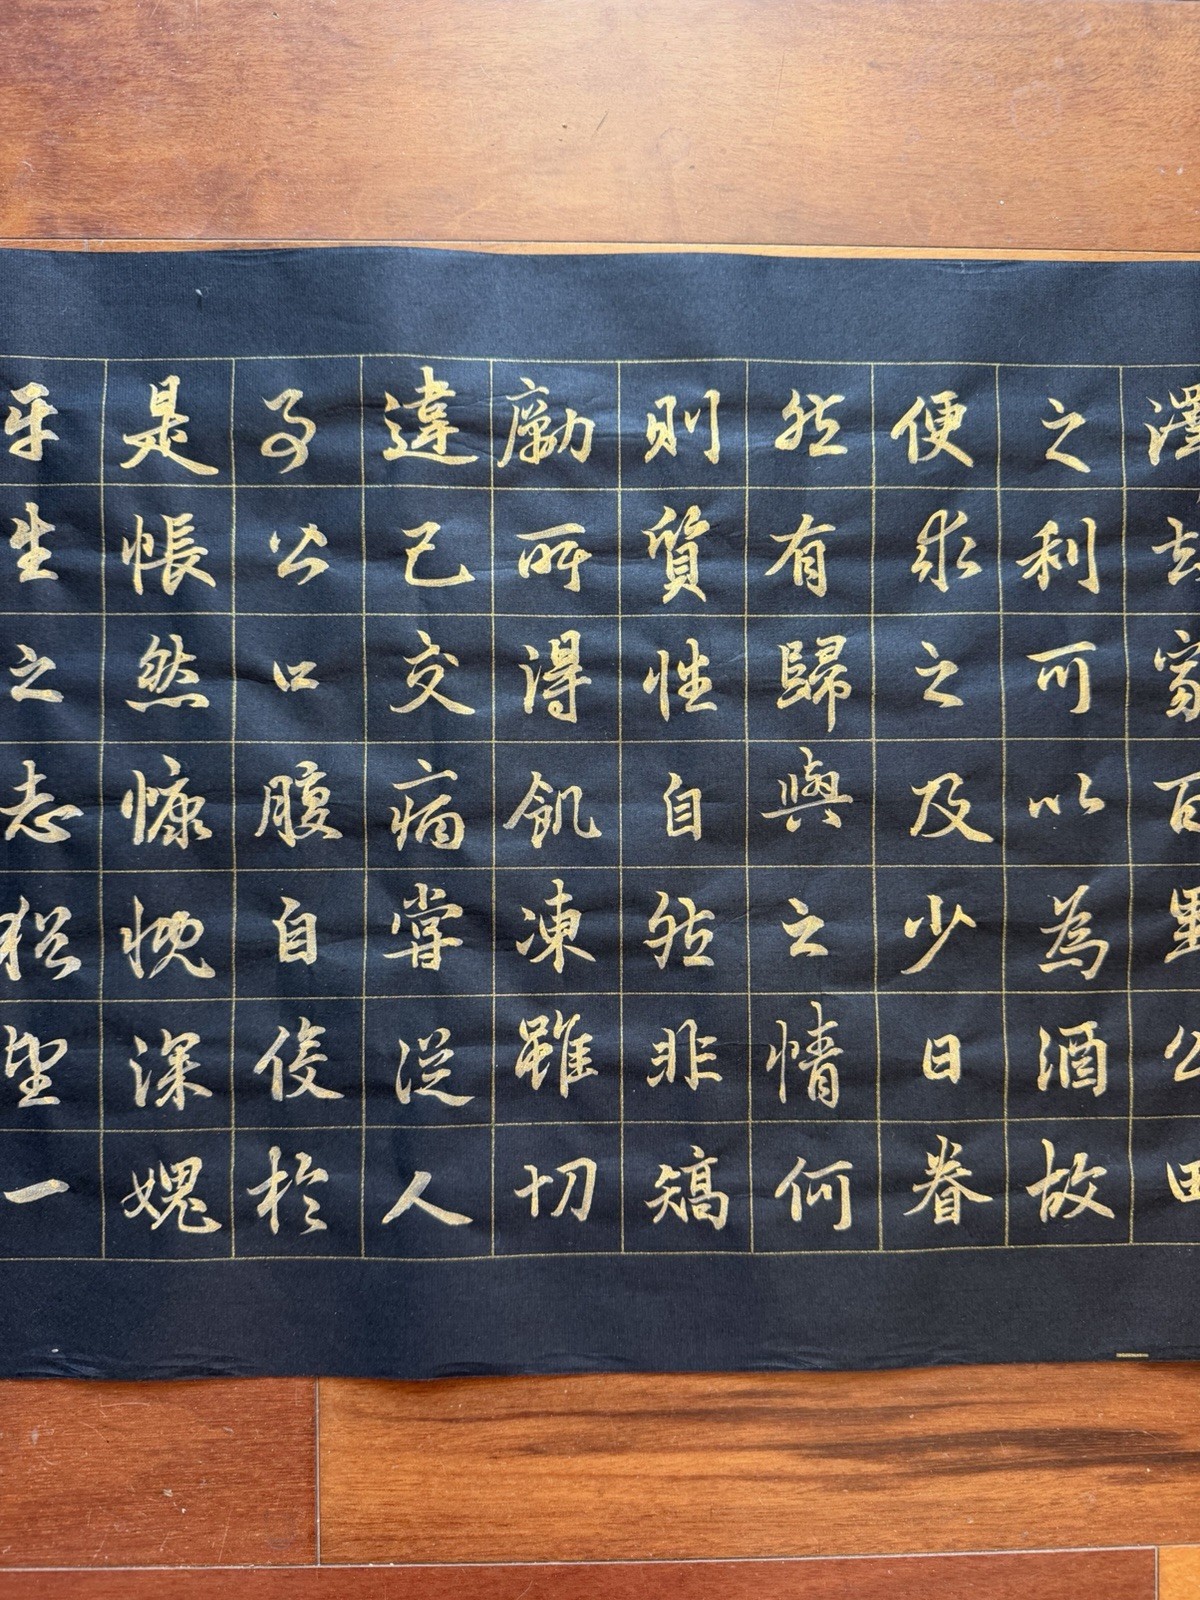 澤去家百里公田
之利可以為酒故
便求之及少日眷
然有歸與之情何
則質性自然非矯
勵所得飢凍雖切
違己交病嘗從人
事皆口腹自役於
是悵然慷慨深媿
平生之志猶望一